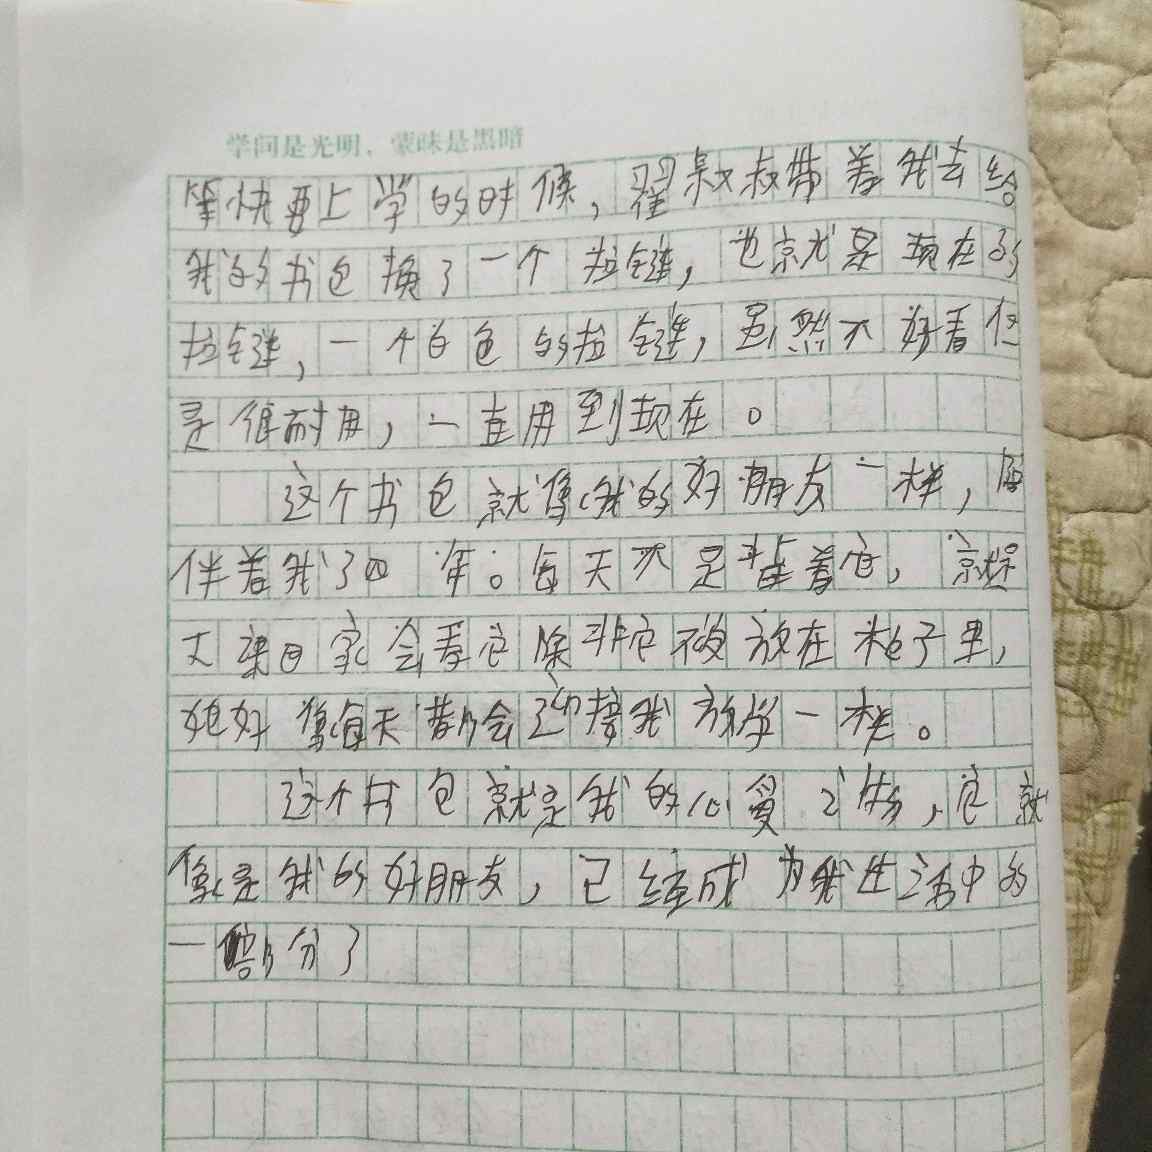 学问是光明，蒙昧是黑暗
等快要上学的时候，翟叔叔带着我去给
我的书包换了一个拉链，也就是现在的
拉链，一个白色的拉链，虽然不好看但
是很耐用，一直用到现在。
这个书包就像我的好朋友一样，陪
伴着我了四年。每天不是背着它，就是
丈来回家会看它除非它不被放在柜子里，
她好像每天都会迎接我放学一样。
这个书包就是我的心爱之物，它就
像是我的好朋友，已经成为我生活中的
一部分了